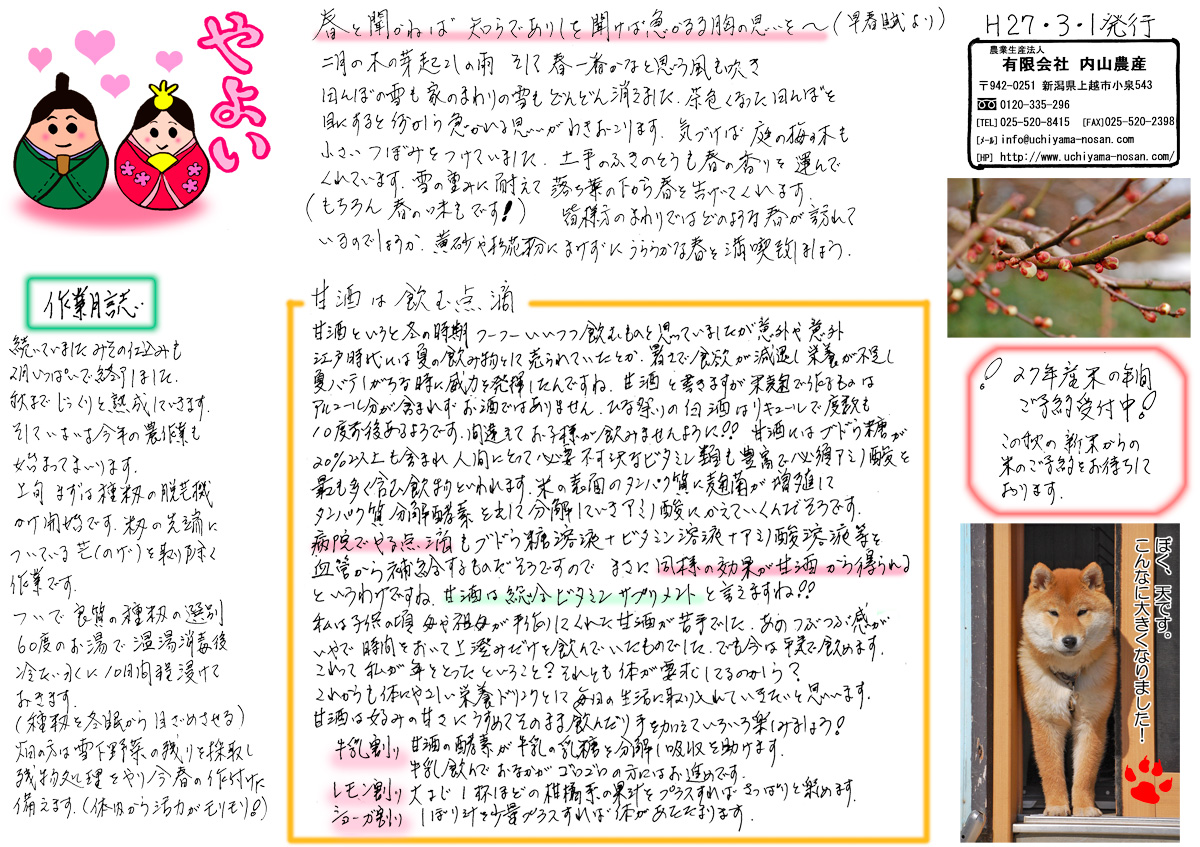 やよい
春と聞かねば 知らでありしを 聞けば急かるる 胸の思いを〜(早春賦より)
二月の木の芽起こしの雨 そして春一番かなと思う風も吹き
田んぼの雪も家のまわりの雪もどんどん消えました。茶色くなった田んぼを
目にすると何かしら急かれる思いがわきおこります。気づけば庭の梅の木も
小さいつぼみをつけていました。土手のふきのとうも春の香りを運んで
くれています。雪の重みに耐えて落ち葉の下から春を告げてくれます。
(もちろん春の味もです!) 皆様方のまわりではどのような春が訪れて
いるのでしょうか。黄砂や杉花粉にまけずにうららかな春を満喫致しましょう。
H27・3・1発行
農業生産法人
有限会社 内山農産
〒942-0251 新潟県上越市小泉543
0120-335-296
[TEL]025-520-8415 [FAX]025-520-2398
[メール] info@uchiyama-nosan.com
[HP] http://www.uchiyama-nosan.com/
作業日誌
続いていましたみその仕込みも
2月いっぱいで終了しました。
秋までじっくりと熟成していきます。
そしていよいよ今年の農作業も
始まってまいります。
上旬 まずは種籾の脱芒機
かけ開始です。籾の先端に
ついている芒(のげ)を取り除く
作業です。
ついで良質の種籾の選別
60度のお湯で温湯消毒後
冷たい水に10日間程浸けて
おきます。
(種籾を冬眠から目ざめさせる)
畑の方は雪下野菜の残りを採取し
残物処理をやり今春の作付けに
備えます。(体内から活力がモリモリ!)
甘酒は飲む点滴
甘酒というと冬の時期 フーフーいいつつ飲むものと思っていましたが意外や意外
江戸時代には夏の飲み物として売られていたとか。暑さで食欲が減退し栄養が不足し
夏バテしがちな時に威力を発揮したんですね。甘酒と書きますが米麹で作るものは
アルコール分が含まれずお酒ではありません。ひな祭りの白酒はリキュールで度数も
10度前後あるようです。間違えてお子様が飲みませんように!! 甘酒にはブドウ糖が
20%以上も含まれ人間にとって必要不可欠なビタミン類も豊富で必須アミノ酸を
最も多く含む飲物といわれます。米の表面のタンパク質に麹菌が増殖して
タンパク質分解酵素を出して分解していきアミノ酸にかえていくんだそうです。
病院でやる点滴もブドウ糖溶液+ビタミン溶液+アミノ酸溶液等を
血管から補給するものだそうですので まさに同様の効果が甘酒から得られる
というわけですね。甘酒は総合ビタミンサプリメントと言えますね!!
私は子供の頃 母や祖母が手作りしてくれた甘酒が苦手でした。あのつぶつぶ感が
いやで時間をおいて上澄みだけを飲んでいたものでした。でも今は平気で飲めます。
これって私が年をとったということ?それとも体が要求してるのかしら?
これからも体にやさしい栄養ドリンクとして毎日の生活に取り入れていきたいと思います。
甘酒は好みの甘さにうすめてそのまま飲んだり手を加えていろいろ楽しみましょう!
牛乳割り 甘酒の酵素が牛乳の乳糖を分解し吸収を助けます。
牛乳飲んでおなかがゴロゴロの方にはお進めです。
レモン割り 大さじ1杯ほどの柑橘系の果汁をプラスすればさっぱりと楽めます。
ショーガ割り しぼり汁を少量プラスすれば体があたたまります。
27年産米の年間
ご予約受付中!
この秋の新米からの
米のご予約をお待ちして
おります。
ぼく、天です。
こんなに大きくなりました!